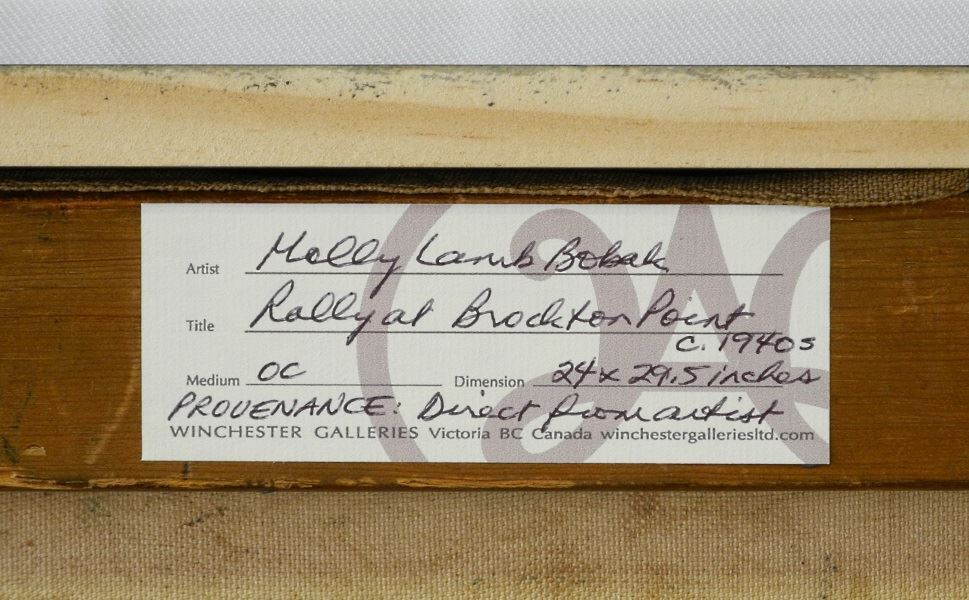 Artist Molly Lamb Bobak
Title Rally at Brockton Point
c. 1940s
Medium OC Dimension 24 x 29.5 inches
PROVENANCE: Direct from artist
WINCHESTER GALLERIES Victoria BC Canada winchestergalleriesltd.com